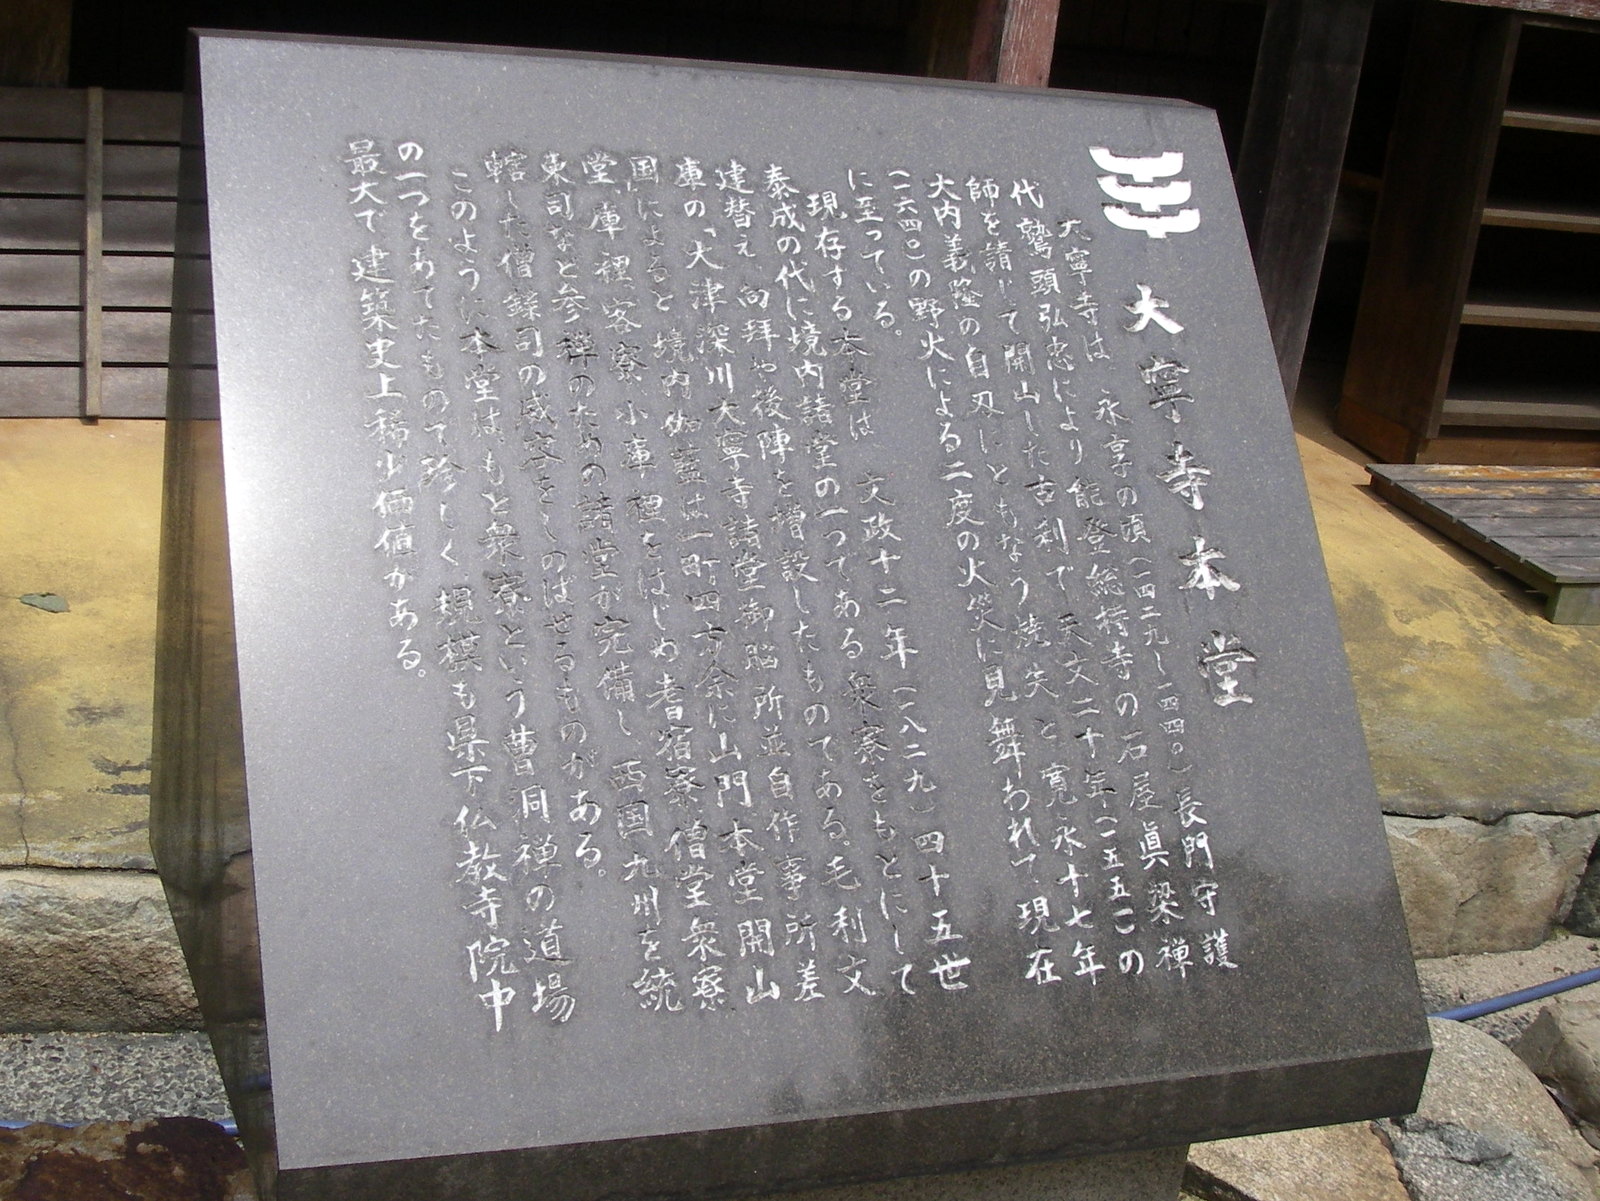 大寧寺本堂
大寧寺は、永享の頃(一四二九~一四四〇)長門守護
代鷲頭弘忠により能登総持寺の石屋眞梁禅
師を請じて開山した古刹で、天文二十年(一五五一)の
大内義隆の自刃にともなう焼失と、寛永十七年
(一六四〇)の野火による二度の火災に見舞われて現在
に至っている。
現存する本堂は、文政十二年(一八二九)四十五世
泰成の代に境内諸堂の一つである衆寮をもとにして
建替え、向拝や後陣を増設したものである。毛利文
庫の「大津深川大寧寺諸堂御脳所並自作事所差
図によると、境内伽藍は一町四方余に山門本堂開山
堂庫裡客寮小庫裡をはじめ耆宿寮僧堂衆寮
東司など参禅のための諸堂が完備し、西国九州を統
轄した僧録司の威容をしのばせるものがある。
このように本堂は、もと衆寮という曹洞禅の道場
の一つをあてたもので珍しく、規模も県下仏教寺院中
最大で建築史上稀少価値がある。